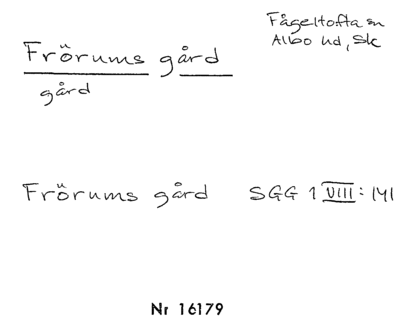 Frörums gård
Fågeltofta sn
Albo hd, Sk
gård
Frörums gård SGG 1 VIII: 141
Nr 16179